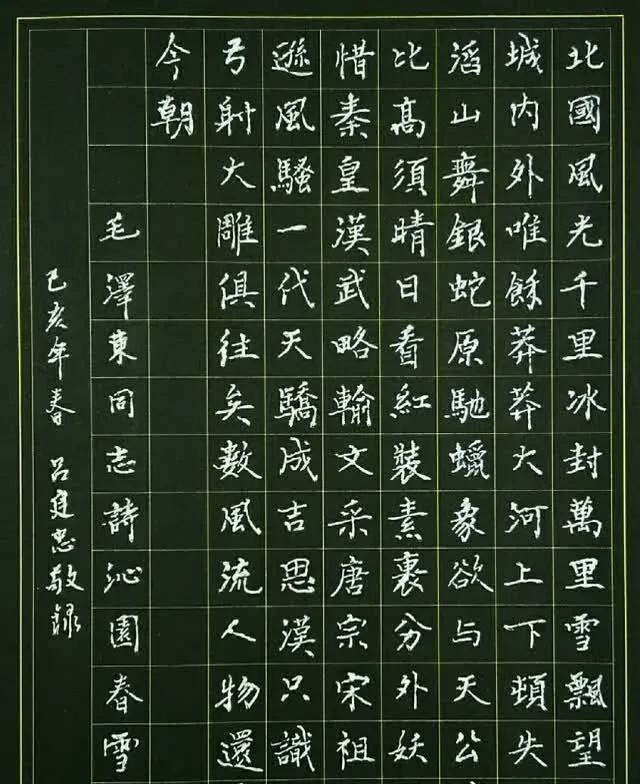 北國風光千里冰封萬里雪飄望
城内外唯餘莽莽大河上下頓失
滔山舞銀蛇原馳蠟象欲与天公
比高須晴日看紅裝素裹分外妖
惜秦皇漢武略輸文采唐宗宋祖
遜風騷一代天驕成吉思漢只識
弓射大雕俱往矣數風流人物還
今朝
毛澤東同志詩沁園春雪
己亥年春 呂忠敬錄